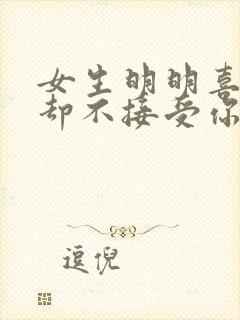 女生明明喜
却不接受你
逗倪